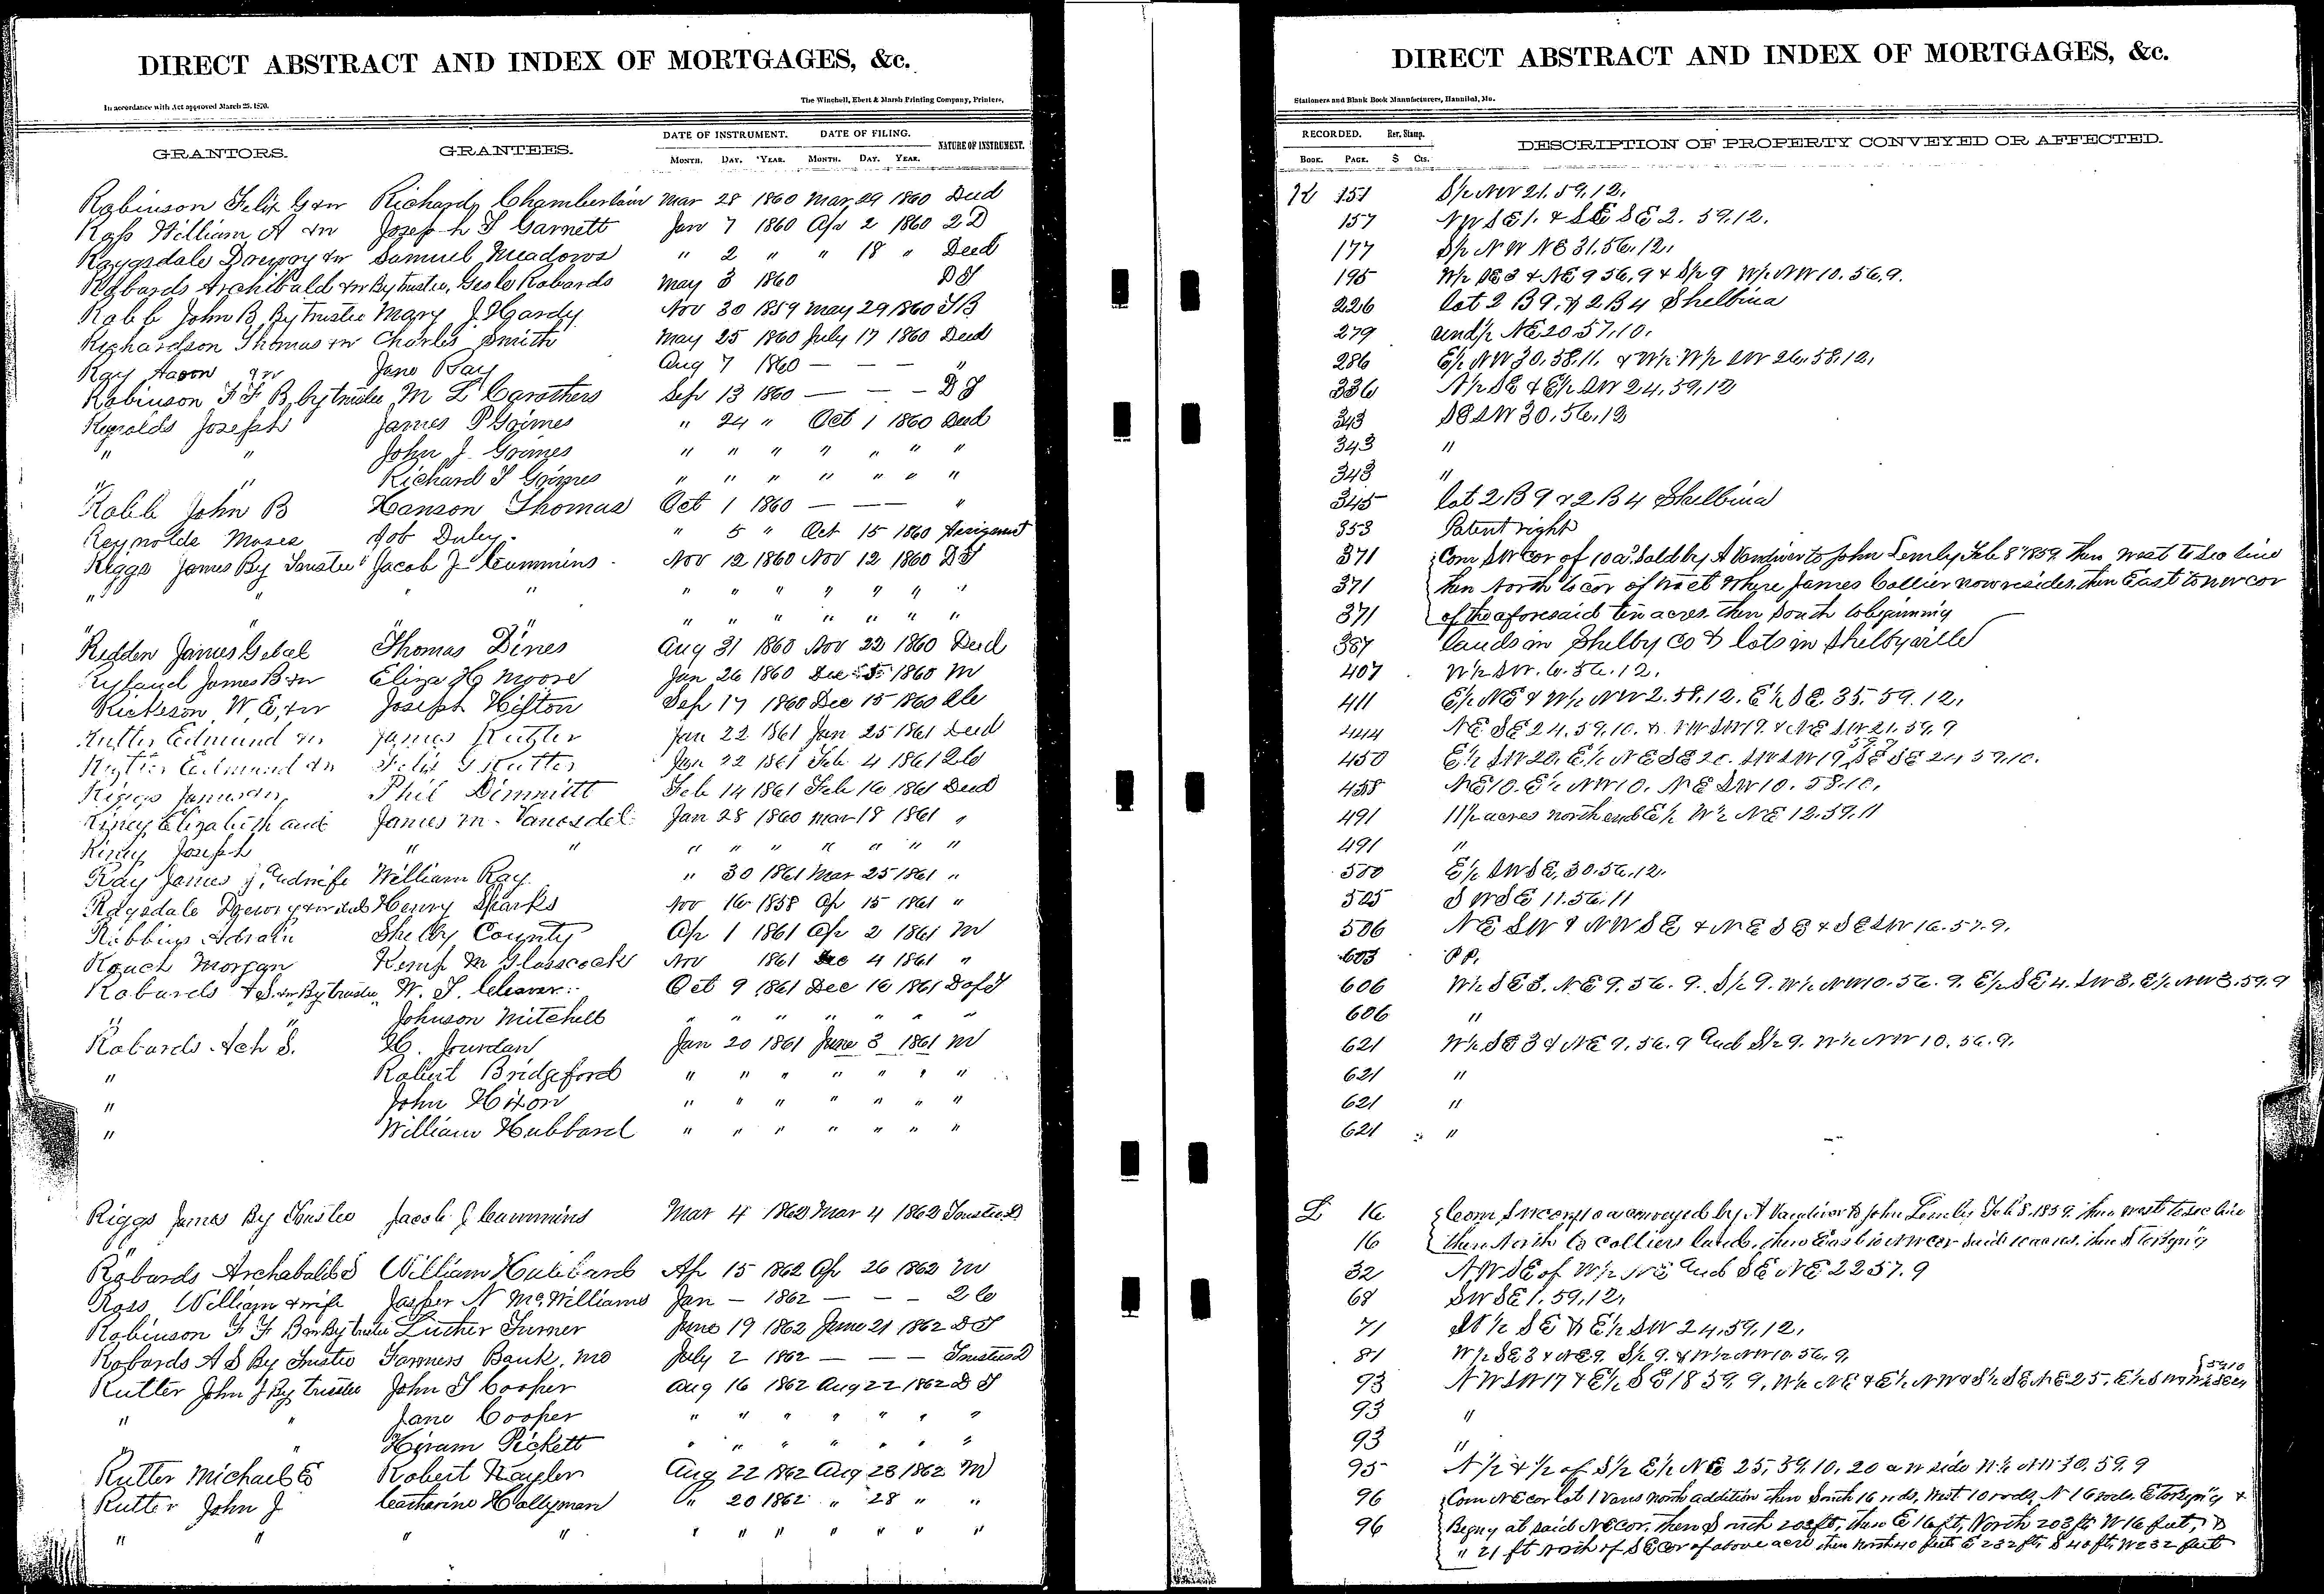 DIRECT ABSTRACT AND INDEX OF MORTGAGES, &c.
In accordance with Act approved March 25, 1870.
The Winchell, Ebert & Marsh Printing Company, Printers,
GRANTORS. GRANTEES. DATE OF INSTRUMENT. DATE OF FILING. NATURE OF INSTRUMENT.
MONTH. DAY. YEAR. MONTH. DAY. YEAR.
Robinson Felix G & w Richard Chamberlain Mar 28 1860 Mar 29 1860 Deed
Ross William A & w Joseph S Garnett Jan 7 1860 Apr 2 1860 2 D
Raygsdale Drewry & w Samuel Meadows " 2 " " 18 " Deed
Robards Archibald & w By trustee, Robards May 3 1860 D T
Robb John B, By trustee Mary J. Hardy Nov 30 1859 May 29 1860 T B
Richardson Thomas & w Charles Smith May 25 1860 July 17 1860 Deed
Ray Aaron & w Jane Ray Aug 7 1860 — — — "
Robinson F F B, by trustee M L Carothers Sep 13 1860 — — — D T
Reynolds Joseph James P Grimes " 24 " Oct 1 1860 Deed
" " John J. Grimes " " " " " " "
" " Richard S Grimes " " " " " " "
Robb John B Hanson Thomas Oct 1 1860 — — "
Reynolds Moses Job Duley. " 5 " Oct 15 1860 Assignment
Riggs James By Trustee Jacob J Cummins Nov 12 1860 Nov 12 1860 D T
" " " " " " " " " " "
" " " " " " " " " " "
Redden James Thomas Dines Aug 31 1860 Nov 22 1860 Deed
Ryland James B & w Eliza H Moore Jan 26 1860 Dec 5 1860 M
Rickeson W E, & w Joseph Hifton Sep 17 1860 Dec 15 1860
Rutter Edmund & w James Rutter Jan 22 1861 Jan 25 1861 Deed
Rutter Edmund & w Felix G Rutter Jan 22 1861 Feb 4 1861
Riggs James & w Phil Dimmitt Feb 14 1861 Feb 16 1861 Deed
Riney Elizabeth and James M. Vanosdel Jan 28 1860 Mar 18 1861 "
Riney Joseph " " " " " " " " "
Ray James J. and wife William Ray " 30 1861 Mar 25 1861 "
Ragsdale Drewry & w Henry Sparks Nov 16 1858 Ap 15 1861 "
Robbins Shelby County Ap 1 1861 Ap 2 1861 M
Rouch Morgan Kemp M Glasscock Nov 1861 Dec 4 1861 "
Robards A S. & w By trustee W. T. Cleaver Oct 9 1861 Dec 16 1861 D of T
" " Johnson Mitchell " " " " " " "
Robards Ach S. H. Jourdan Jan 20 1861 June 3 1861 M
" Robert Bridgeford " " " " " " "
" John Hixon " " " " " " "
" William Hubbard " " " " " " "
Riggs James By Trustee Jacob J Cummins Mar 4 1862 Mar 4 1862 Trustee D
"
Robards Archabald S William Hubbard Ap 15 1862 Ap 26 1862 M
Ross William & wife Jasper N McWilliams Jan — 1862 — — —
Robinson F F B & w By trustee Luther Turner June 19 1862 June 21 1862 D T
Robards A S By Trustee Farmers Bank, Mo July 2 1862 — — — Trustees D
Rutter John J By trustee John S Cooper Aug 16 1862 Aug 22 1862 D T
" " Jane Cooper " " " " " " "
" " Hiram Pickett " " " " " " "
Rutter Michael E Robert Kaylor Aug 22 1862 Aug 23 1862 M
Rutter John J Catharine Hollyman " 20 1862 " 28 " "
" " " " " " " " " " "
DIRECT ABSTRACT AND INDEX OF MORTGAGES, &c.
Stationers and Blank Book Manufacturers, Hannibal, Mo.
RECORDED. Rev. Stamp. DESCRIPTION OF PROPERTY CONVEYED OR AFFECTED.
BOOK. PAGE. $ Cts.
K 151 S½ NW 21. 59. 12.
157 NW SE 1. & SE SE 2. 59. 12.
177 S½ NW NE 31. 56. 12.
195 W½ SE 3 & NE 9 56. 9 & S½ 9 W½ NW 10. 56. 9.
226 Lot 2 B 9. & 2 B 4 Shelbina
279 und½ NE 20 57. 10.
286 E½ NW 30. 58. 11. & W½ W½ SW 26. 58. 12.
336 N½ SE & E½ SW 24. 59. 12
343 SE SW 30. 56. 12
343 "
343 "
345 lot 2 B 9 & 2 B 4 Shelbina
353 Patent right
371 Com SW Cor of 10 a. Sold by A Vandiver to John Lemley Feb 8 1859 then west to Sec line
371 then North to cor of tract where James Collier now resides, then East to nw cor
371 of the aforesaid ten acres. then South to beginning
387 lands in Shelby Co & lots in Shelbyville
407 W½ SW. 6. 56. 12.
411 E½ NE & W½ NW 2. 58. 12. E½ SE. 35. 59. 12.
444 NE SE 24. 59. 10. & NW SW 19. & NE SW 21. 59. 9
450 E½ SW 20. E½ NE SE 20. SW SW 19 59 9 SE SE 24. 59. 10.
458 NE 10. E½ NW 10. NE SW 10. 58. 10.
491 11½ acres north end E½ W½ NE 12. 59. 11
491 "
500 E½ SW SE, 30. 56. 12.
505 SW SE 11. 56. 11
506 NE SW & NW SE & NE SE & SE SW 16. 57. 9.
603 P P.
606 W½ SE 3. NE 9. 56. 9. S½ 9. W½ NW 10. 56. 9. E½ SE 4. SW 3. E½ NW 3. 59. 9
606 "
621 W½ SE 3 & NE 9. 56. 9 and S½ 9. W½ NW 10. 56. 9.
621 "
621 "
621 "
L 16 Com conveyed by A Vandiver to John Lemley Feb 8. 1859. then west to sec line
16 then North to Colliers land, then East to NW cor said acres, then S to begn'g
32 NW SE of W½ NE and SE NE 22 57. 9
68 SW SE 1. 59. 12.
71 N½ SE & E½ SW 24. 59. 12.
81 W½ SE 3 & NE 9. S½ 9. & W½ NW 10. 56. 9.
93 NW SW 17 & E½ SE 18 59. 9, W½ NE & E½ NW & S½ SE NE 25. 59 10
93 "
93 "
95 N½ & ½ of S½ E½ NE 25, 59. 10, 20 a w side W½ NW 30, 59. 9
96 Com NE cor lot 1 Vans north addition then South 16 rods, West 10 rods, N 16 rods, E to begn'g &
96 Begng at said NE cor. then South 203 ft, then E 16 ft, North 203 ft W 16 feet, &
" 21 ft north of SE cor of above acre then north 40 feet E 232 ft, S 40 ft, W 232 feet